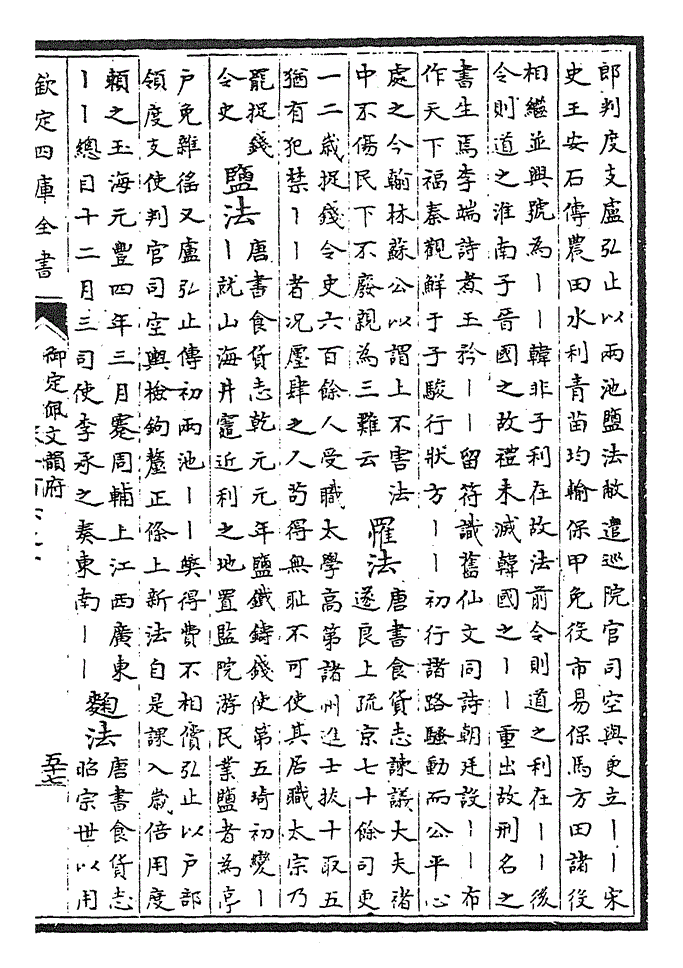 郎判度支盧弘止以兩池鹽法敝遣巡院官司空與更立丨丨宋
史王安石傳農田水利青苗均輸保甲免役市易保馬方田諸役
相繼並興號為丨丨韓非子利在故法前令則道之利在丨丨後
令則道之淮南子晉國之故禮未滅韓國之丨丨重出故刑名之
書生焉李端詩煮玉矜丨丨留符識舊仙文同詩朝廷設丨丨布
作天下福秦觀鮮于子駿行狀方丨丨初行諸路騷動而公平心
處之今翰林蘇公以謂上不害法
中不傷民下不廢親為三難云
罹法
唐書食貨志諫議大夫褚
遂良上疏京七十餘司更
一二歲捉錢令史六百餘人受職太學高第諸州進士拔十取五
猶有犯禁丨丨者况廛肆之人苟得無耻不可使其居職太宗乃
罷捉錢
令史
鹽法
唐書食貨志乾元元年鹽鐵鑄錢使第五琦初變丨
丨就山海井竈近利之地置監院游民業鹽者為亭
戶免雜徭又盧弘止傳初兩池丨丨獘得費不相償弘止以戶部
領度支使判官司空輿檢鉤釐正條上新法自是課入歲倍用度
賴之玉海元豐四年三月蹇周輔上江西廣東
丨丨總目十二月三司使李承之奏東南丨丨
麴法
唐書食貨志
昭宗世以用
欽定四庫全書
御定佩文韻府
五十七